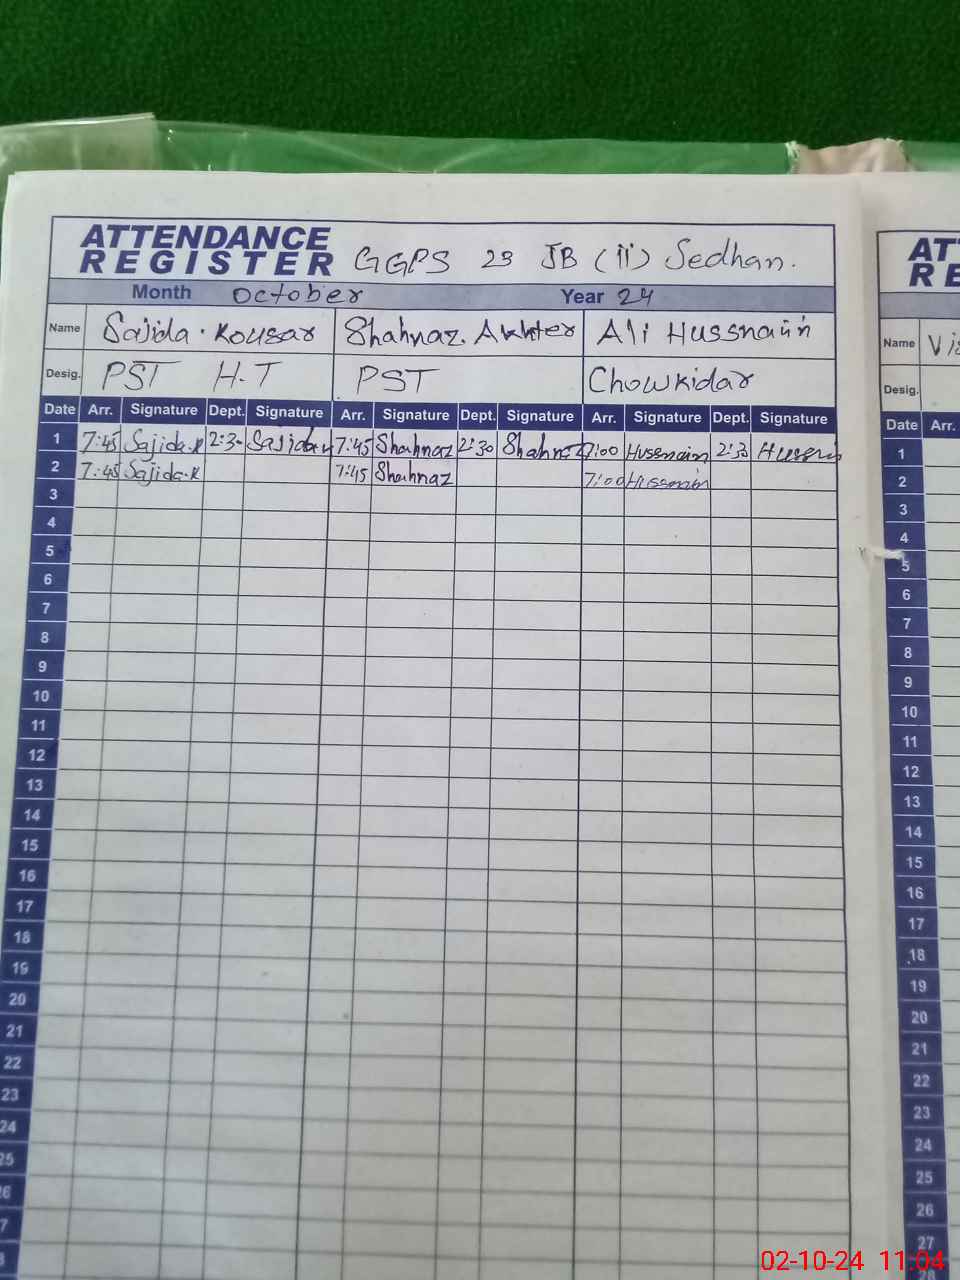 ATTENDANCE REGISTER GGPS 23 JB (ii) Sedhan.
Month October Year 24
Name Sajida. Kousar Shahnaz. Akhter Ali Hussnain
Desig. PST H.T PST Chowkidar
Date Arr. Signature Dept. Signature Arr. Signature Dept. Signature Arr. Signature Dept. Signature
1 7:45 Sajida.K 2:30 Sajida.K 7:45 Shahnaz 2:30 Shahnaz 7:00 Hussnain 2:30 Hussnain
2 7:45 Sajida.K 7:45 Shahnaz 7:00 Hussnain
3
4
5
6
7
8
9
10
11
12
13
14
15
16
17
18
19
20
21
22
23
24
25
Name
Desig.
Date Arr.
1
2
3
4
5
6
7
8
9
10
11
12
13
14
15
16
17
18
19
20
21
22
23
24
25
26
27
02-10-24 11:04